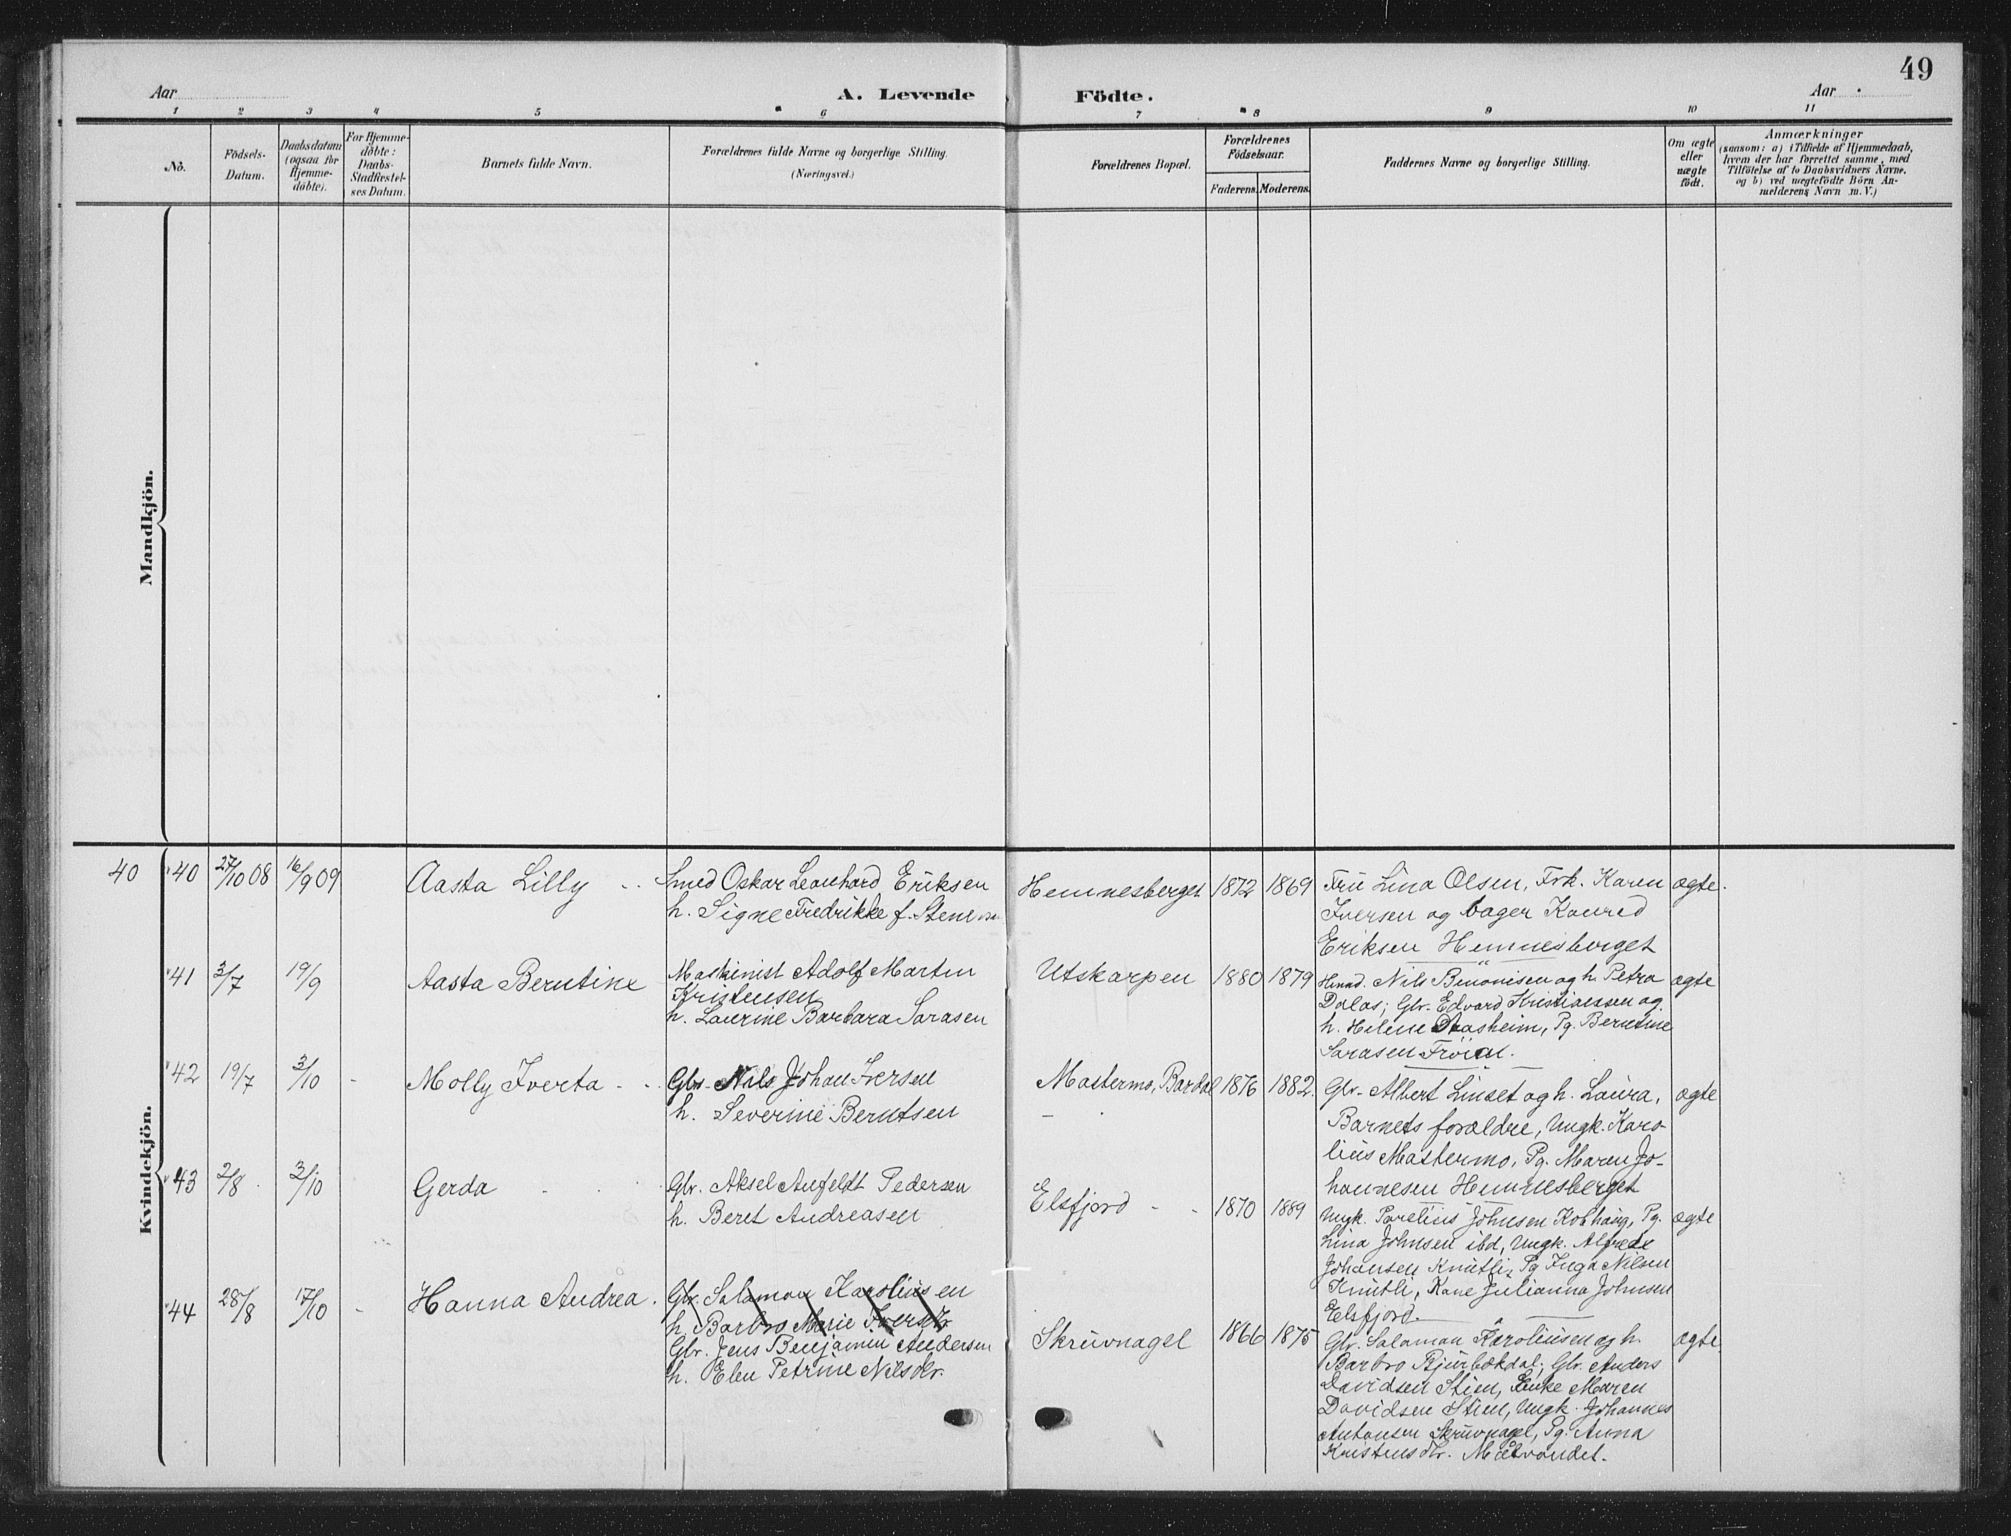 49
Aar
A. Levende
Födte.
Aar
1 2 3 4 5 6 7 8 9 10 11
No.
Födsels-
Datum.
Daabsdatum
(ogsaa for
Hjemme-
döbte).
For Hjemme-
döbte:
Daabs-
Stadfæstel-
ses Datum.
Barnets fulde Navn.
Forældrenes fulde Navne og borgerlige Stilling.
(Næringsvei.)
Forældrenes Bopæl.
Forældrenes
Födselsaar.
Faderens. Moderens.
Faddernes Navne og borgerlige Stilling.
Om ægte
eller
uægte
födt.
Anmærkninger
(saasom: a) i Tilfælde af Hjemmedaab,
hvem der har forrettet samme, med
Tilföielse af to Daabsvidners Navne,
og b) ved uægtefödte Börn An-
melderens Navn m. V.)
Mandkjön.
Kvindekjön.
40
40 27/10 08 16/9 09 Aasta Lilly
Smed Oskar Leonhard Eriksen
h. Signe Fredrikke f. Stene
Hemnesberget 1872 1869
Fru Lina Olsen, Frk. Karen
Iversen og bager Konrad
Eriksen Hemnesberget
ægte.
41 3/7 19/9 Aasta Berntine
Maskinist Adolf Martin
Kristensen
h. Laurine Barbara Larasen
Utskarpen 1880 1879
Nils Benonisen og h. Petra
Dalos; Gbr. Edvard Kristiansen og
h. Helene Daasheim, Pg. Berntine
Larasen Fröian.
ægte
42 19/7 3/10 Molly Iverta
Gbr. Nils Johan Iversen
h. Severine Berntsen
Mastermo, Bardal 1876 1882.
Gbr. Albert Linset og h. Laura,
Barnets forældre, Ungk. Karo-
lius Mastermo, Pg. Maren Jo-
hannesen Hemnesberget
ægte
43 2/8 3/10 Gerda
Gbr. Aksel Anfeldt Pedersen
h. Beret Andreasen
Elsfjord 1870 1889
Ungk. Parelius Johnsen Kobhaug, Pg.
Lina Johnsen ibd, Ungk. Alfred
Johansen Knutli, Pg Inga Nilsen
Knutli, Kone Julianna Johnsen
Elsfjord.
ægte
44 28/8 17/10 Hanna Andrea.
Gbr. Salamon Karoliusen
h. Barbro Marie Iversdtr
Gbr. Jens Benjamin Andersen
h. Elen Petrine Nilsdtr.
Skruvnagel 1866 1875
Gbr. Salamon Karoliusen og h.
Barbro Bjurbækdal; Gbr. Anders
Davidsen Stien, Enke Maren
Davidsen Stien, Ungk. Johannes
Antonsen Skruvnagel, Pg. Anna
Kristensdtr. Målvandet.
ægte